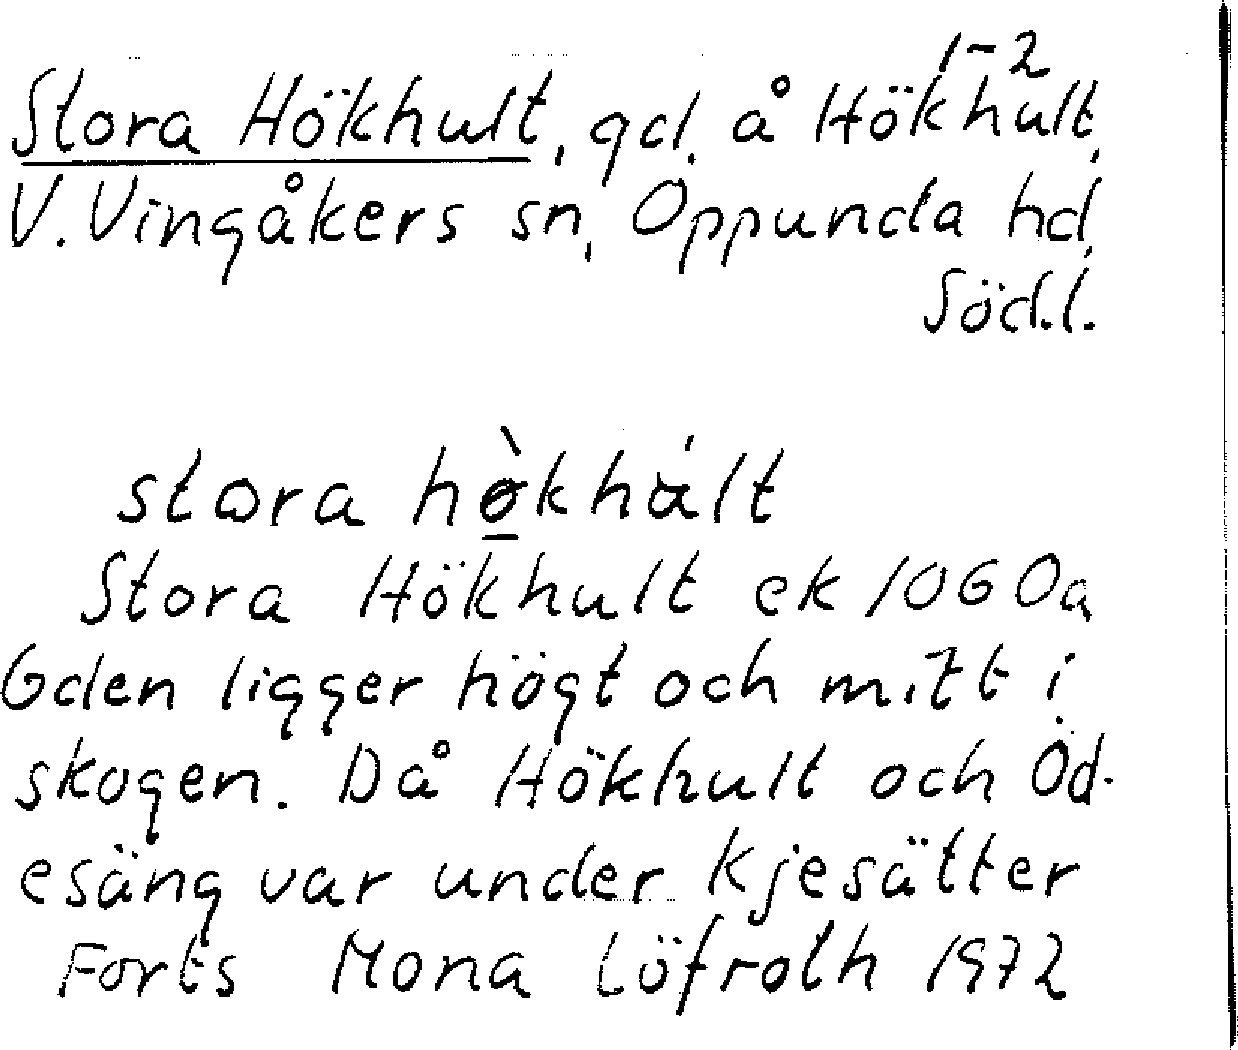 Stora Hökhult, gd. å Hökhult 1-2,
V. Vingåkers sn, Oppunda hd,
Söd.l.
stora hø̱̀khált
Stora Hökhult ek 10G 0a
Gden ligger högt och mitt i
skogen. Då Hökhult och Öd-
esäng var under Kjesätter
Forts Mona Löfroth 1972